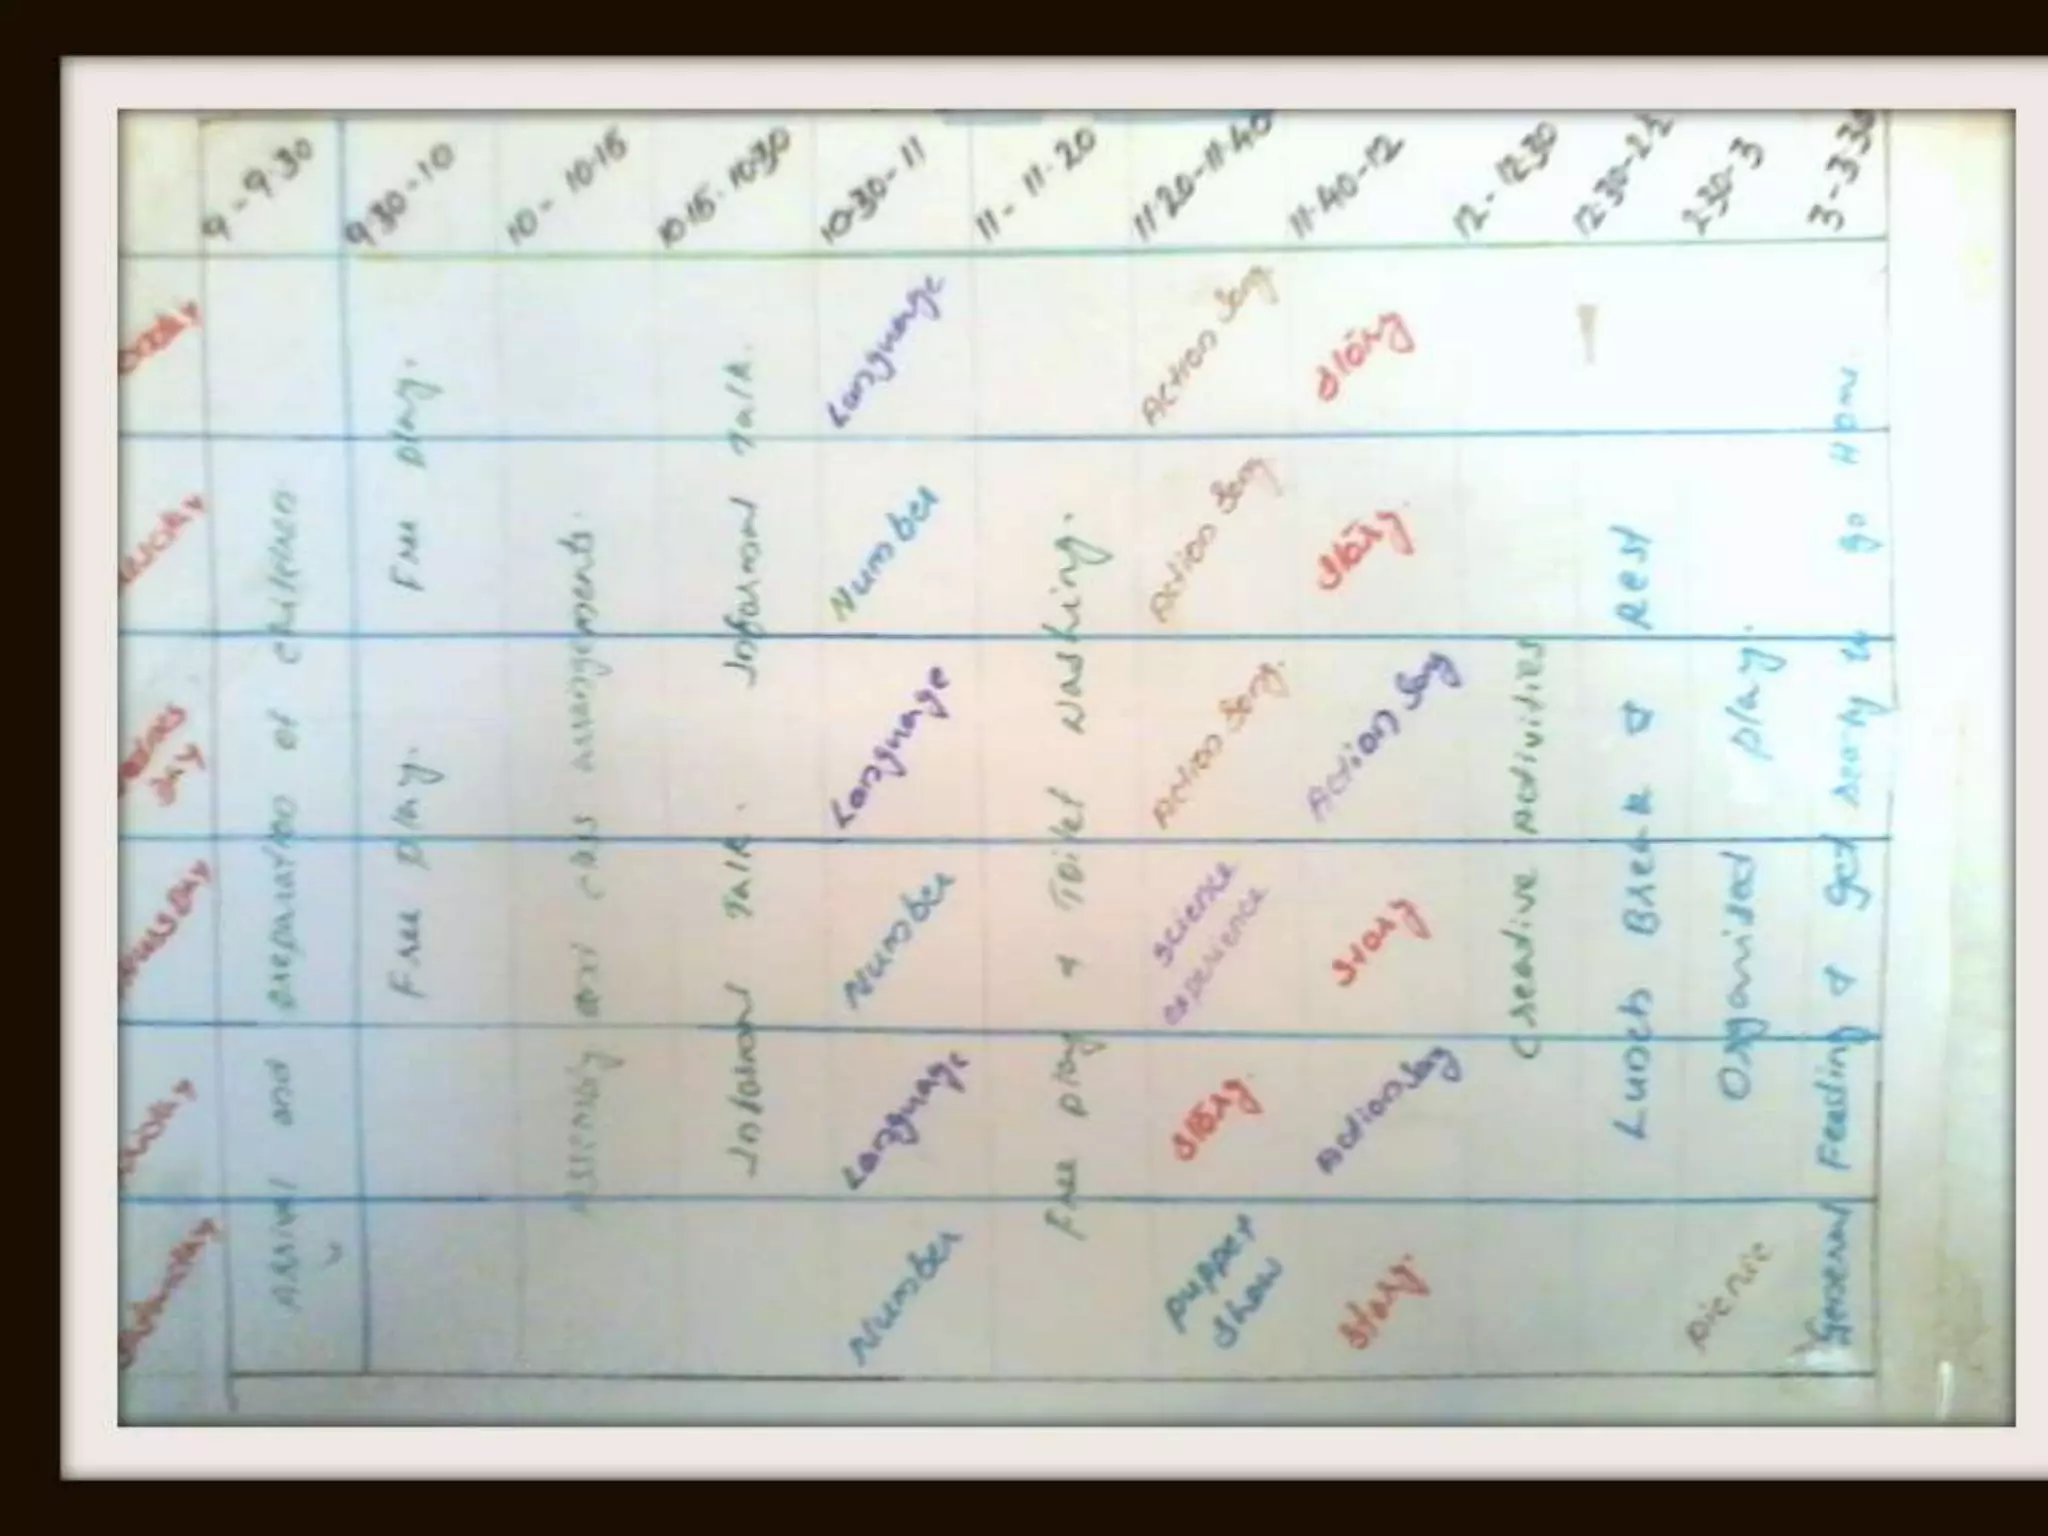 9-9.30 9.30-10 10-10.15 10.15-10.30 10.30-11 11-11.20 11.20-11.40 11.40-12 12-12.30 12.30-2.30 2.30-3 3-3.30
Arrival and preparation of children
Free play.
Free play.
Assembly and class arrangements.
Informal Talk.
Informal Talk.
Free play & Toilet Washing.
Creative Activities
Lunch Break & Rest
Organised play.
General Feeding & get ready to go Home
Language Action Song Story
Number Action Song Story.
Language Action Song. Action Song
Thursday Number Science Story
experience
Language Story. Action Song
Saturday Number Puppet Story.
Show
Picnic